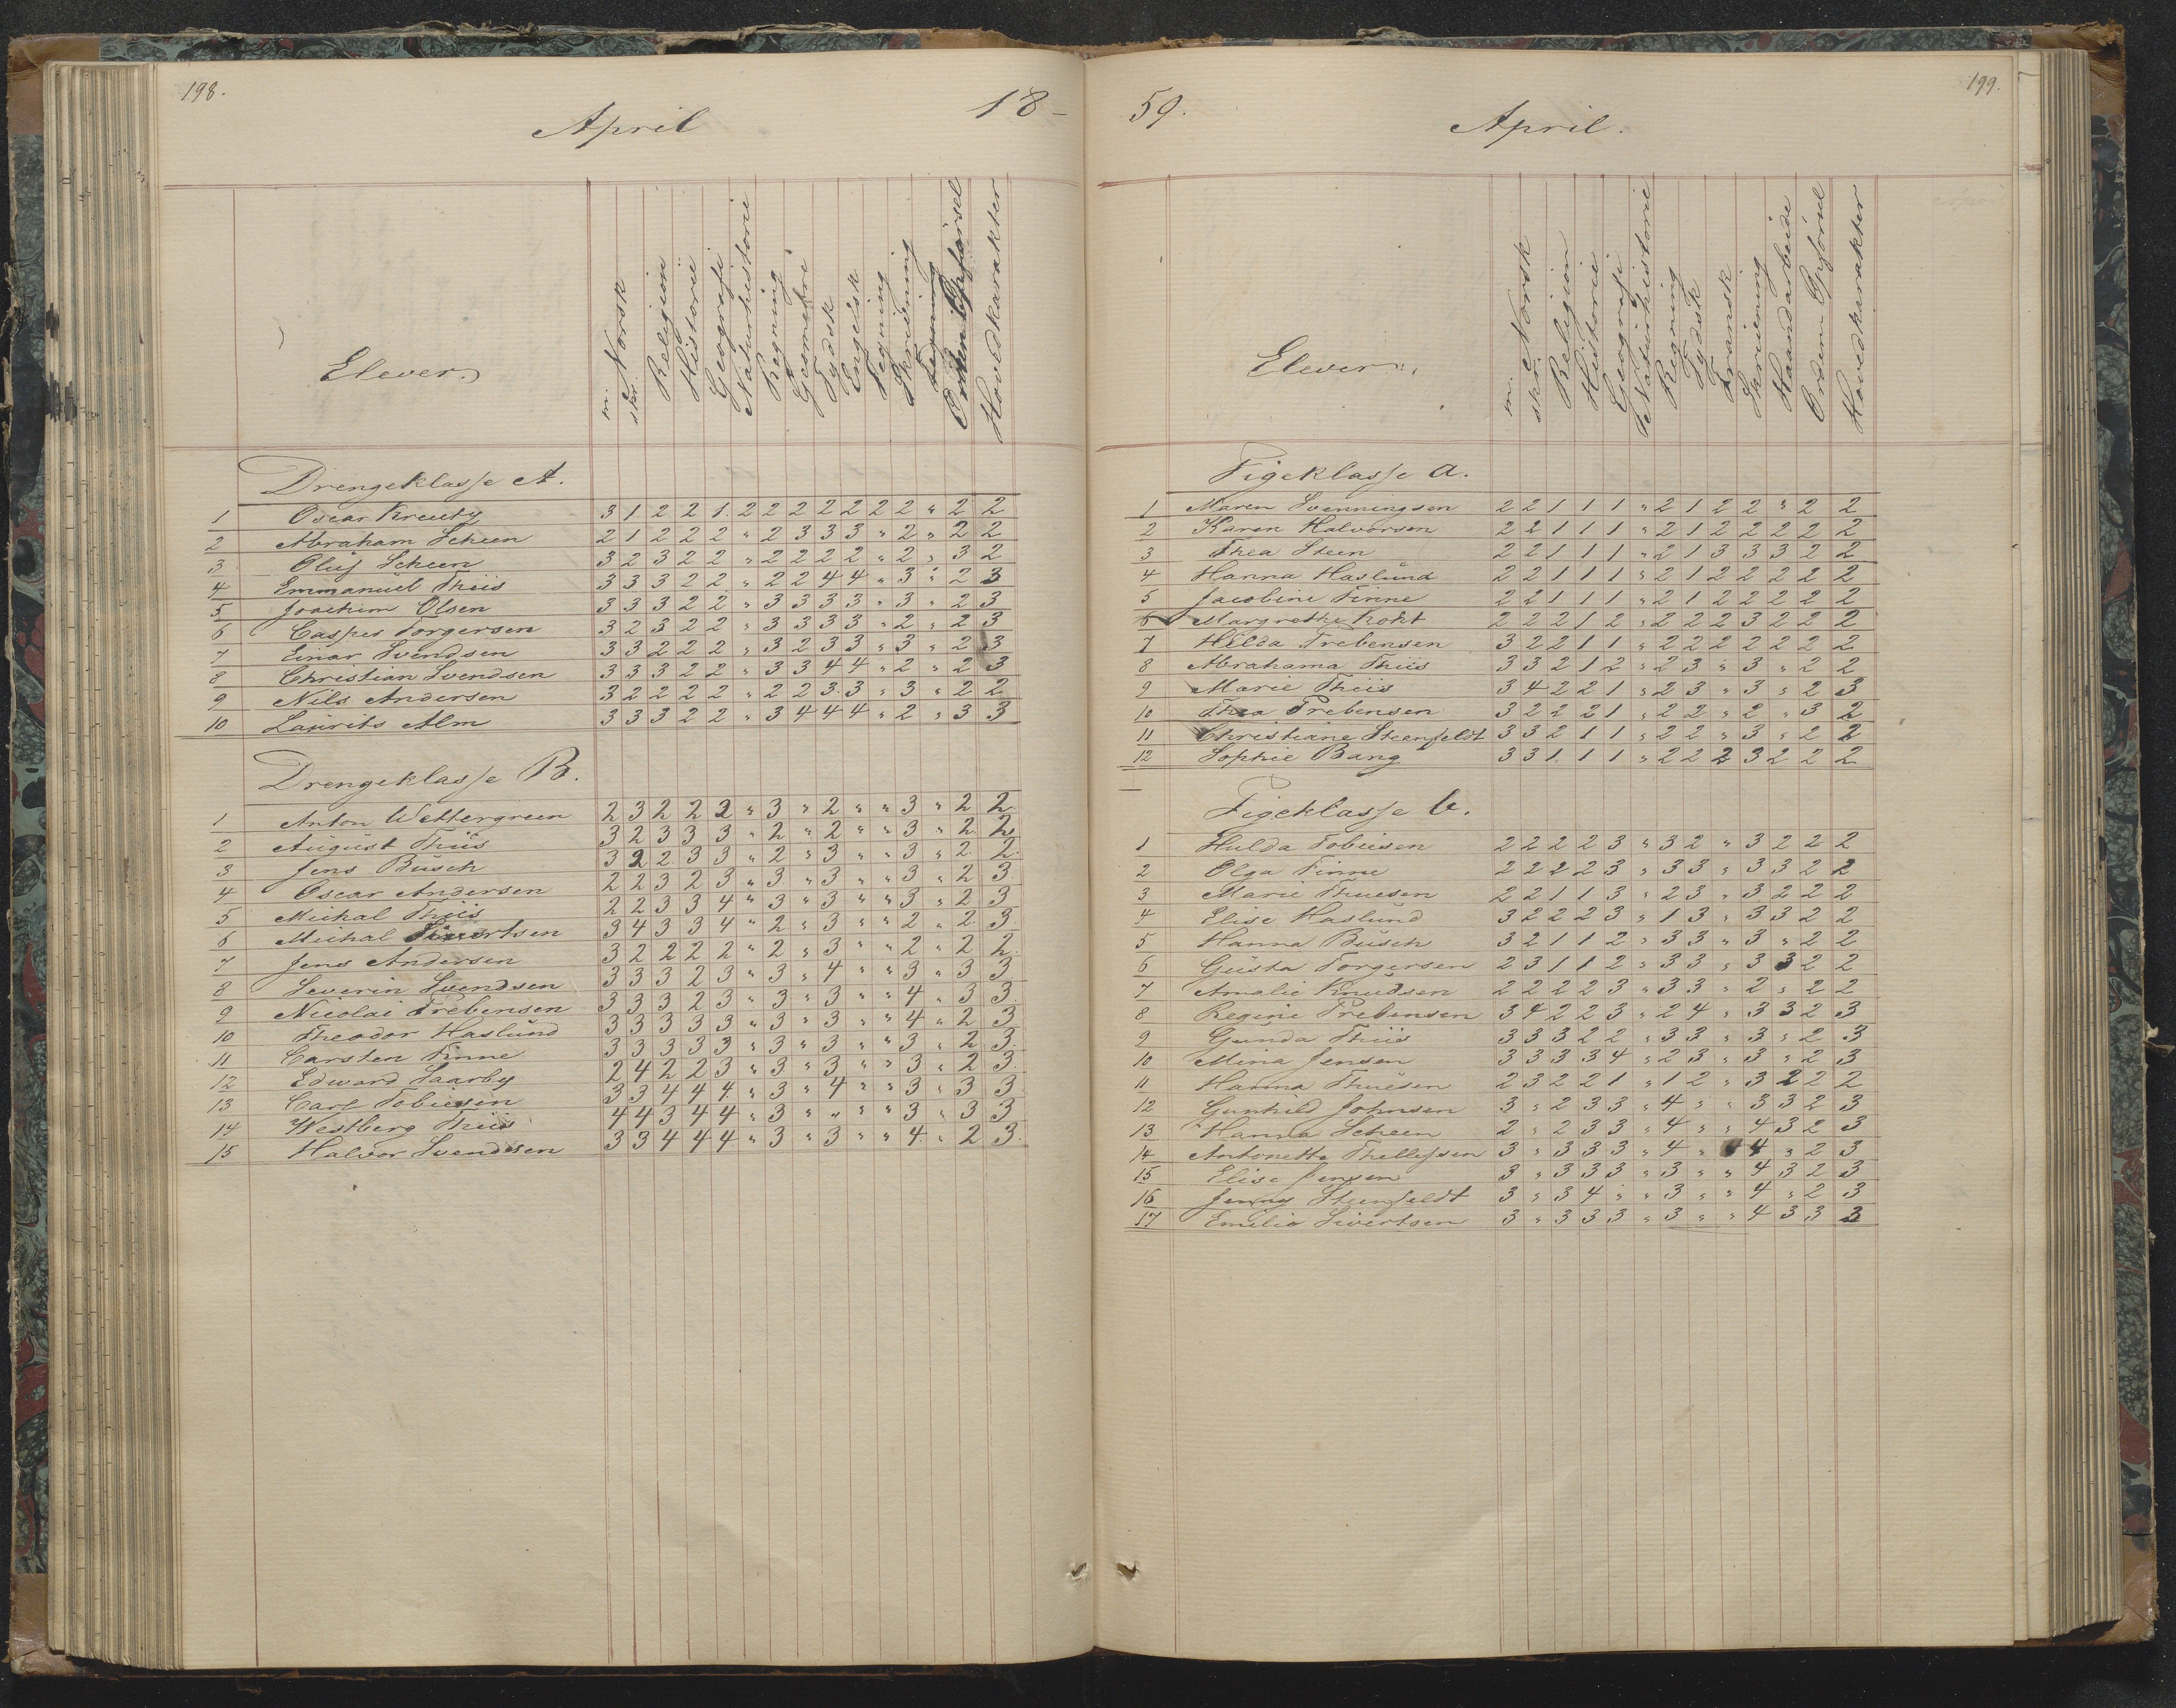 198.
April
18-
Elever.
m. Norsk
skr.
Religion
Historie
Geografi
Naturhistorie
Regning
Geometri
Tydsk
Engelsk
Tegning
Skrivning
Orden Opførsel
Hovedkarakter
Drengeklasse A.
1 Oscar Kreutz 3 1 2 2 1 2 2 2 2 2 2 2 " 2 2
2 Abraham Scheen 2 1 2 2 2 " 2 3 3 3 " 2 " 2 2
3 Oluf Scheen 3 2 3 2 2 " 2 2 2 2 " 2 " 3 2
4 Emmanuel Thiis 3 3 3 2 2 " 2 2 4 4 " 3 " 2 3
5 Joachim Olsen 3 3 3 2 2 " 3 3 3 3 " 3 " 2 3
6 Casper Torgersen 3 2 3 2 2 " 3 3 3 3 " 2 " 2 3
7 Einar Svendsen 3 3 2 2 2 " 3 2 3 3 " 3 " 2 3
8 Christian Svendsen 3 3 3 2 2 " 3 3 4 4 " 2 " 2 3
9 Nils Andersen 3 2 2 2 2 " 2 2 3 3 " 3 " 2 2
10 Laurits Alm 3 3 3 2 2 " 3 4 4 4 " 2 " 3 3
Drengeklasse B.
1 Anton Wettergreen 2 3 2 2 2 " 3 " 2 " " 3 " 2 2
2 August Thiis 3 2 3 3 3 " 2 " 2 " " 3 " 2 2
3 Jens Busch 3 2 2 3 3 " 2 " 3 " " 3 " 2 2
4 Oscar Andersen 2 2 3 2 3 " 3 " 3 " " 3 " 2 3
5 Michal Thiis 2 2 3 3 4 " 3 " 3 " " 3 " 2 3
6 Michal Sivertsen 3 4 3 3 4 " 2 " 3 " " 2 " 2 3
7 Jens Andersen 3 2 2 2 2 " 2 " 3 " " 2 " 2 2
8 Severin Svendsen 3 3 3 2 3 " 3 " 4 " " 3 " 3 3
9 Nicolai Prebensen 3 3 3 2 3 " 3 " 3 " " 4 " 3 3
10 Theodor Haslund 3 3 3 3 3 " 3 " 3 " " 4 " 2 3
11 Carsten Finne 3 3 3 3 3 " 3 " 3 " " 3 " 2 3
12 Edward Saarby 2 4 2 2 3 " 3 " 3 " " 3 " 2 3
13 Carl Tobiesen 3 3 4 4 4 " 3 " 4 " " 3 " 3 3
14 Westberg Thiis 4 4 3 4 4 " 3 " " " " 3 " 3 3
15 Halvor Svendsen 3 3 4 4 4 " 3 " 3 " " 4 " 2 3
199.
59.
April.
Elever.
m. Norsk
skr.
Religion
Historie
Geografi
Naturhistorie
Regning
Tydsk
Fransk
Skrivning
Haandarbeide
Orden Opførsel
Hovedkarakter
Pigeklasse a.
1 Maren Svenningsen 2 2 1 1 1 " 2 1 2 2 " 2 2
2 Karen Halvorsen 2 2 1 1 1 " 2 1 2 2 2 2 2
3 Thea Steen 2 2 1 1 1 " 2 1 3 3 3 2 2
4 Hanna Haslund 2 2 1 1 1 " 2 1 2 2 2 2 2
5 Jacobine Finne 2 2 1 1 1 " 2 1 2 2 2 2 2
6 Margrethe Kokt 2 2 2 1 2 " 2 2 2 3 2 2 2
7 Hilda Prebensen 3 2 2 1 1 " 2 2 2 2 2 2 2
8 Abrahama Thiis 3 3 2 1 2 " 2 3 " 3 " 2 2
9 Marie Thiis 3 4 2 2 1 " 2 3 " 3 " 2 3
10 Thea Prebensen 3 2 2 2 1 " 2 2 " 2 " 3 2
11 Christiane Steenfeldt 3 3 2 1 1 " 2 2 " 3 " 2 2
12 Sophie Bang 3 3 1 1 1 " 2 2 2 3 2 2 2
Pigeklasse b.
1 Hulda Tobiesen 2 2 2 2 3 " 3 2 " 3 2 2 2
2 Olga Finne 2 2 2 2 3 " 3 3 " 3 3 2 2
3 Marie Thuesen 2 2 1 1 3 " 2 3 " 3 2 2 2
4 Elise Haslund 3 2 2 2 3 " 1 3 " 3 3 2 2
5 Hanna Busch 3 2 1 1 2 " 3 3 " 3 " 2 2
6 Gusta Torgersen 2 3 1 1 2 " 3 3 " 3 3 2 2
7 Amalie Knudsen 2 2 2 2 3 " 3 3 " 2 " 2 2
8 Regine Prebensen 3 4 2 2 3 " 2 4 " 3 3 2 3
9 Gunda Thiis 3 3 3 2 2 " 3 3 " 3 " 2 3
10 Mina Jensen 3 3 3 3 4 " 2 3 " 3 " 2 3
11 Hanna Thuesen 2 3 2 2 1 " 1 2 " 3 2 2 2
12 Gunhild Johnsen 3 " 2 3 3 " 4 " " 3 3 2 3
13 Hanna Scheen 2 " 2 3 3 " 4 " " 4 3 2 3
14 Antonette Thellefsen 3 " 3 3 3 " 4 " 4 " 2 3
15 Elise Jensen 3 " 3 3 3 " 3 " " 4 3 2 3
16 Jenny Steenfeldt 3 " 3 4 " " 3 " " 4 " 2 3
17 Emilie Sivertsen 3 " 3 3 3 " 3 " " 4 3 3 3